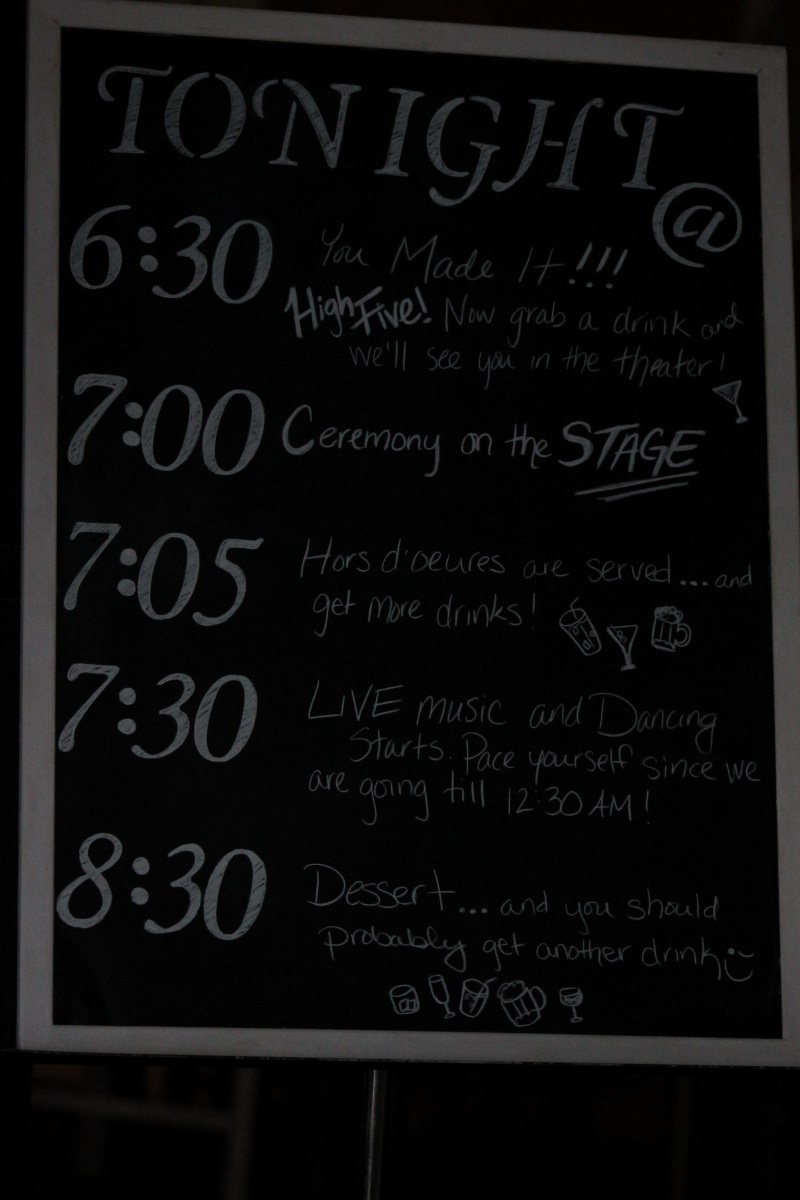 TONIGHT @
6:30 You Made It!!!
High Five! Now grab a drink and
we'll see you in the theater!
7:00 Ceremony on the STAGE
7:05 Hors d'oeures are served...and
get more drinks!
7:30 LIVE music and Dancing
Starts. Pace yourself since we
are going till 12:30 AM!
8:30 Dessert... and you should
probably get another drink